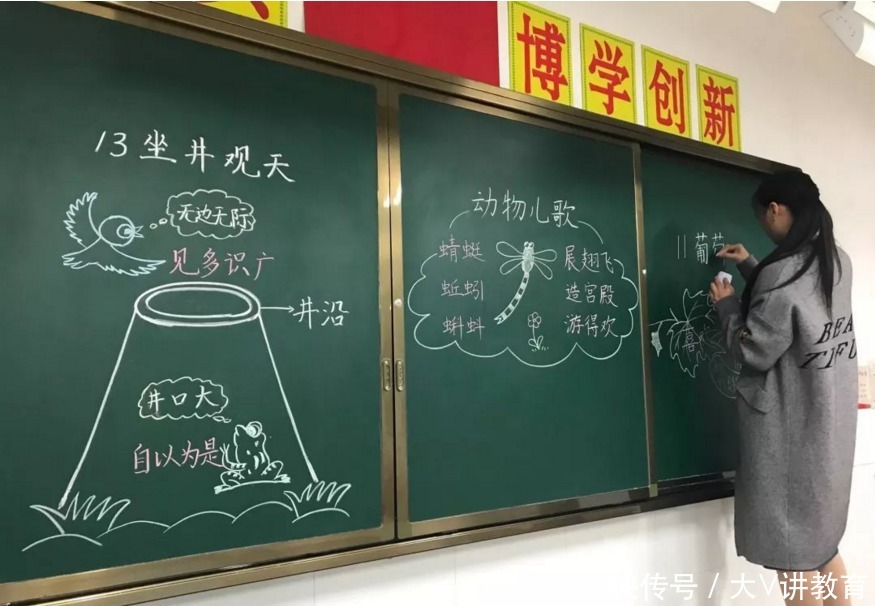 博学创新
13坐井观天
无边无际
见多识广
井沿
井口大
自以为是
动物儿歌
蜻蜓 展翅飞
蚯蚓 造宫殿
蝌蚪 游得欢
11 葡萄
喜
BEA
TIFU
传号 / 大V讲教育